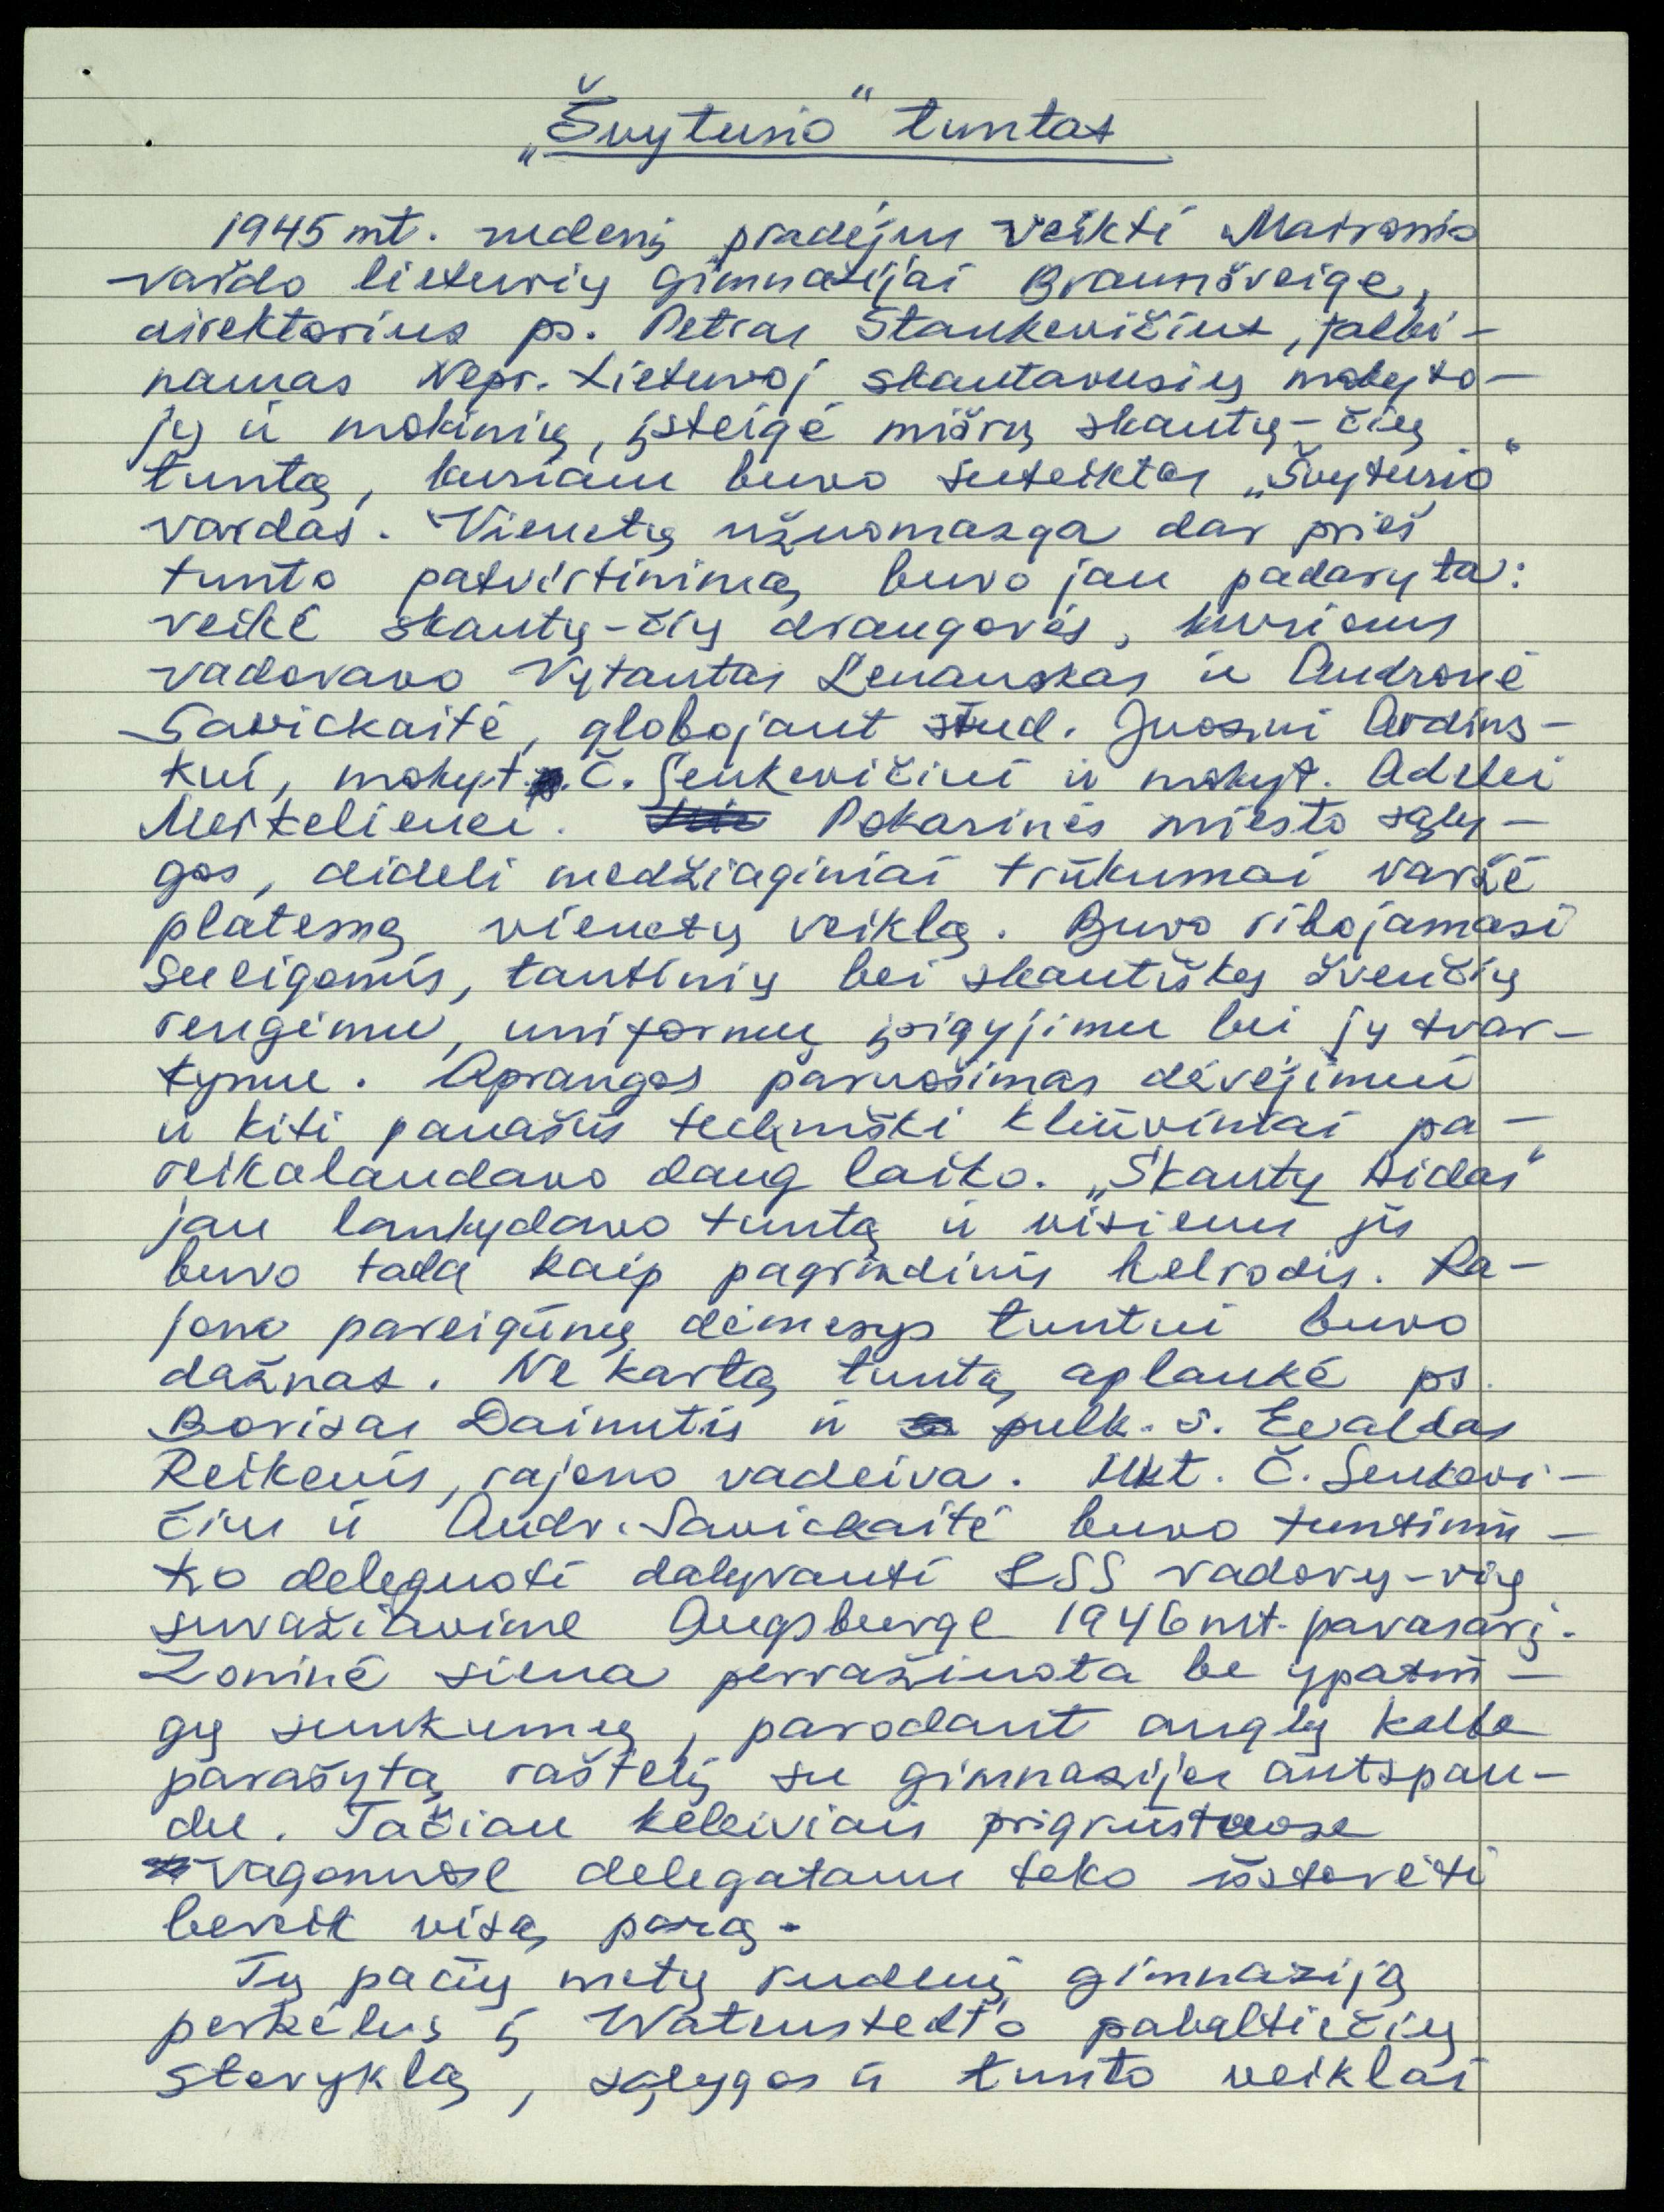 „Švyturio" tuntas
1945 mt. rudenį pradėjus veikti Maironio
vardo lietuvių gimnazijai Braunšveige,
direktorius ps. Petras Stankevičius, talki-
namas Nepr. Lietuvoj skautavusių mokyto-
jų ir mokinių, įsteigė mišrų skautų-čių
tuntą, kuriam buvo suteiktas „Švyturio"
vardas. Vienetų užuomazga dar prieš
tunto patvirtinimą buvo jau padaryta:
veikė skautų-čių draugovės, kurioms
vadovavo Vytautas Lenauskas ir Audronė
Savickaitė, globojant stud. Juozui Ardins-
kui, mokyt. Č. Senkevičiui ir mokyt. Adelei
Merkelienei. Pokarinės miesto sąly-
gos, dideli medžiaginiai trūkumai varžė
platesnę vienetų veiklą. Buvo ribojamasi
sueigomis, tautinių bei skautiškų švenčių
rengimu, uniformų įsigyjimu bei jų tvar-
kymu. Aprangos paruošimas dėvėjimui
ir kiti panašūs techniški kliūviniai pa-
reikalaudavo daug laiko. „Skautų Aidas"
jau lankydavo tuntą ir visiems jis
buvo tada kaip pagrindinis kelrodis. Ra-
jono pareigūnų dėmesys tuntui buvo
dažnas. Ne kartą tuntą aplankė ps.
Borisas Dainutis ir pulk. s. Evaldas
Reikenis, rajono vadeiva. Mkt. Č. Senkevi-
čius ir Audr. Savickaitė buvo tuntinin-
ko deleguoti dalyvauti LSS vadovų-vių
suvažiavime Augsburge 1946 mt. pavasarį.
Zoninė siena pervažiuota be ypatin-
gų sunkumų, parodant anglų kalba
parašytą raštelį su gimnazijos antspau-
du. Tačiau keleiviais prigrūstuose
vagonuose delegatams teko išstovėti
beveik visą parą.
Tų pačių metų rudenį gimnaziją
perkėlus į Watenstedt'o pabaltiečių
stovyklą, sąlygos ir tunto veiklai